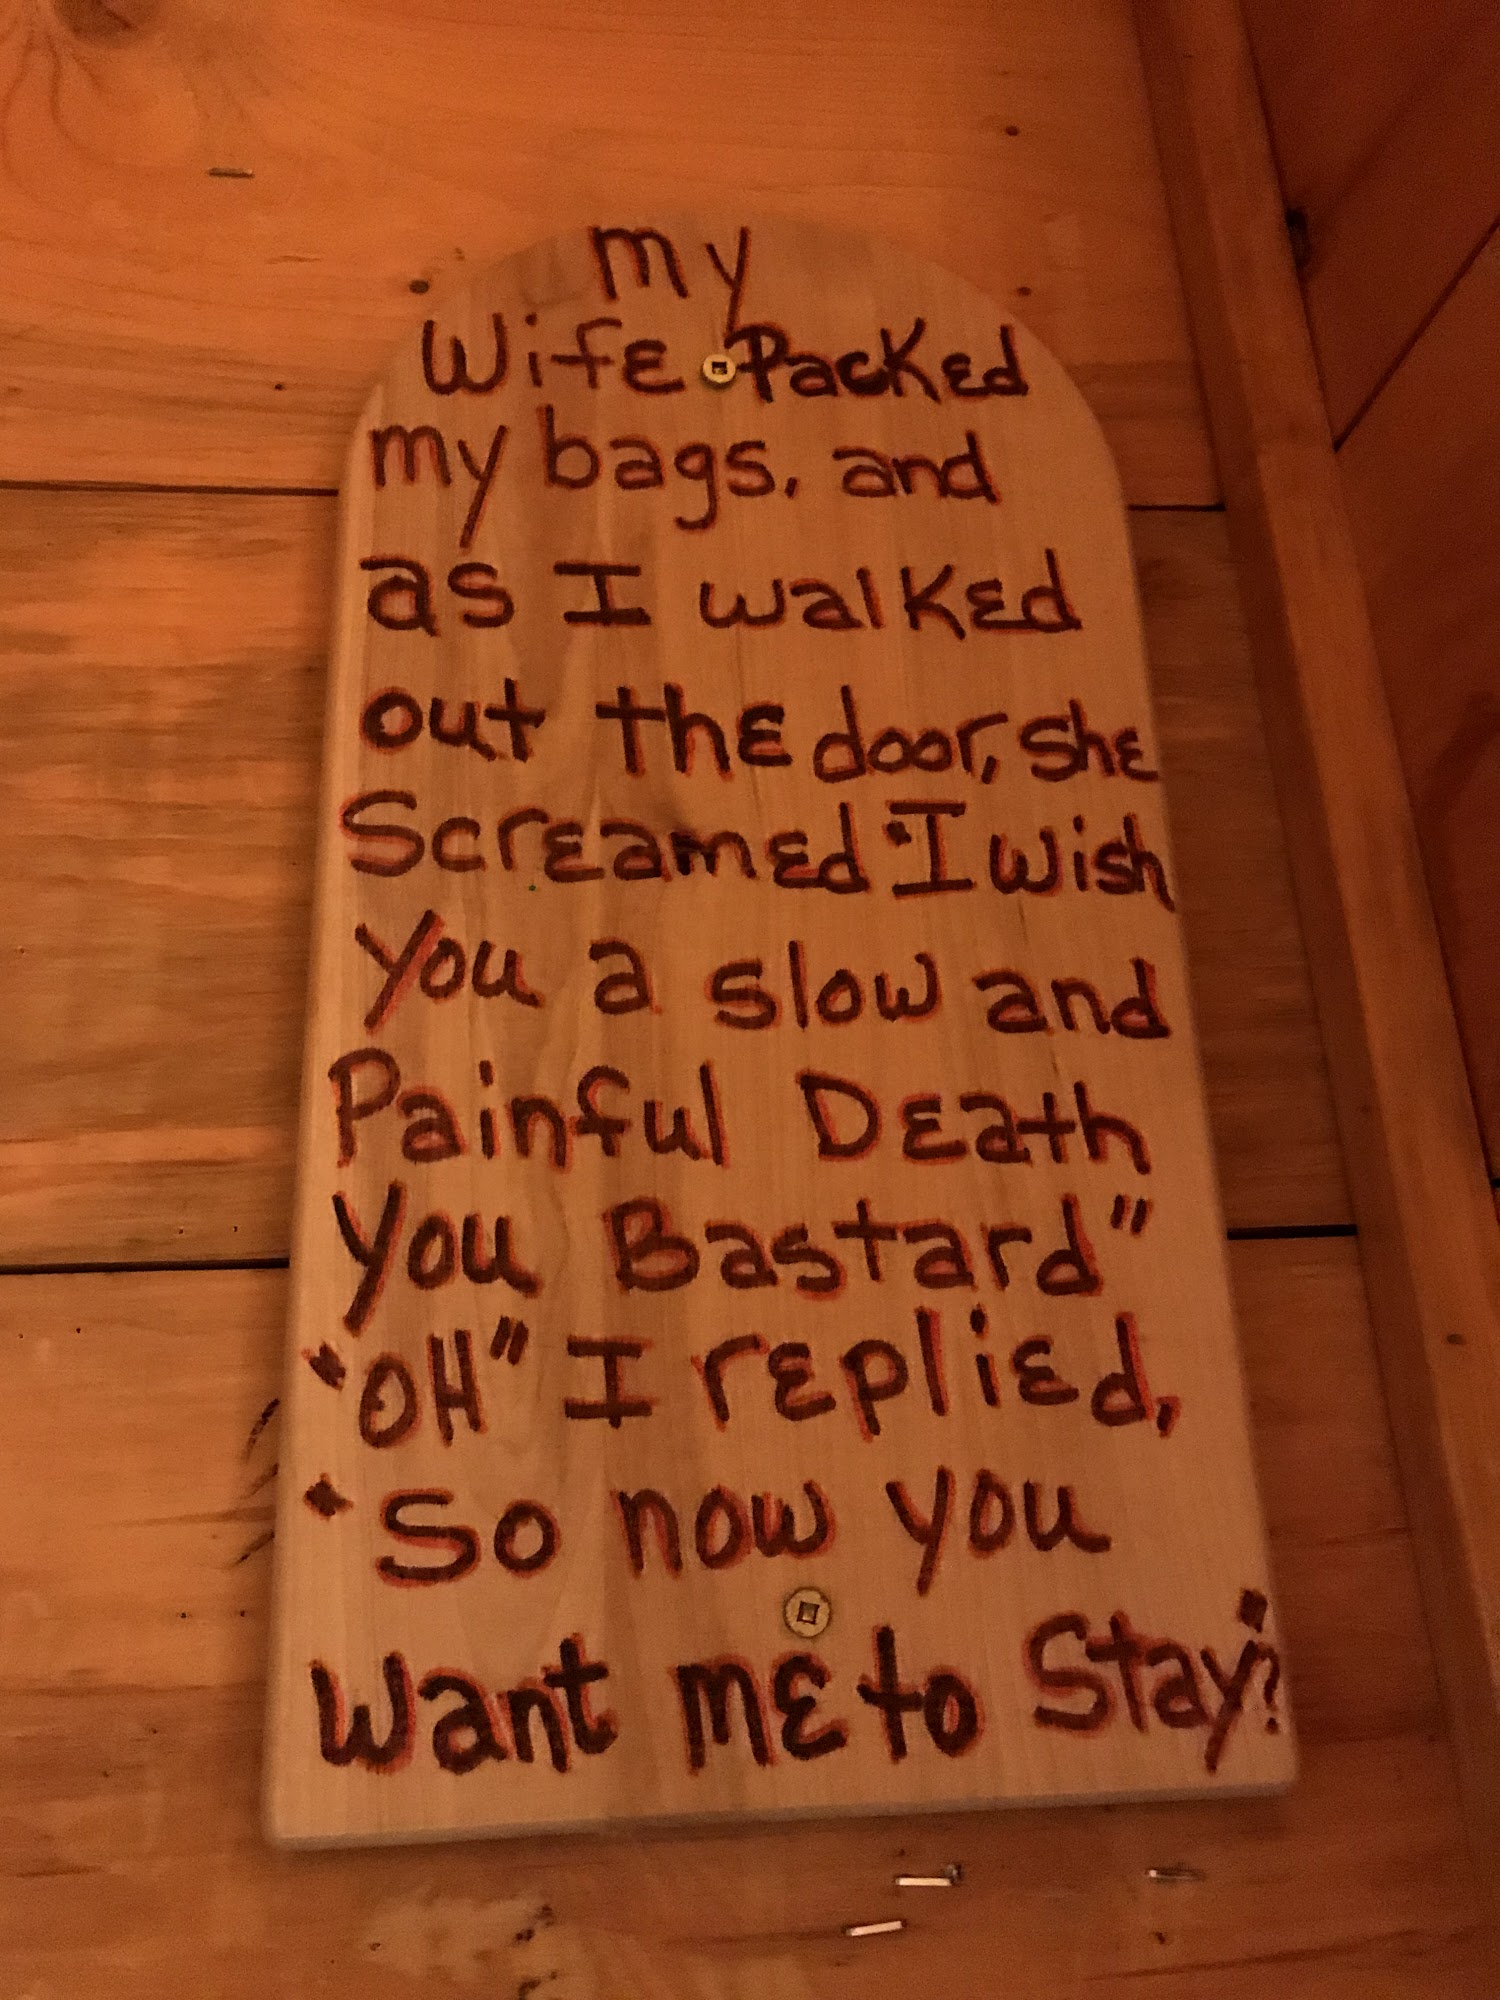 my
Wife Packed
my bags, and
as I walked
out the door, she
Screamed "I wish
you a slow and
Painful Death
you Bastard"
"OH" I replied,
"So now you
Want me to Stay"?